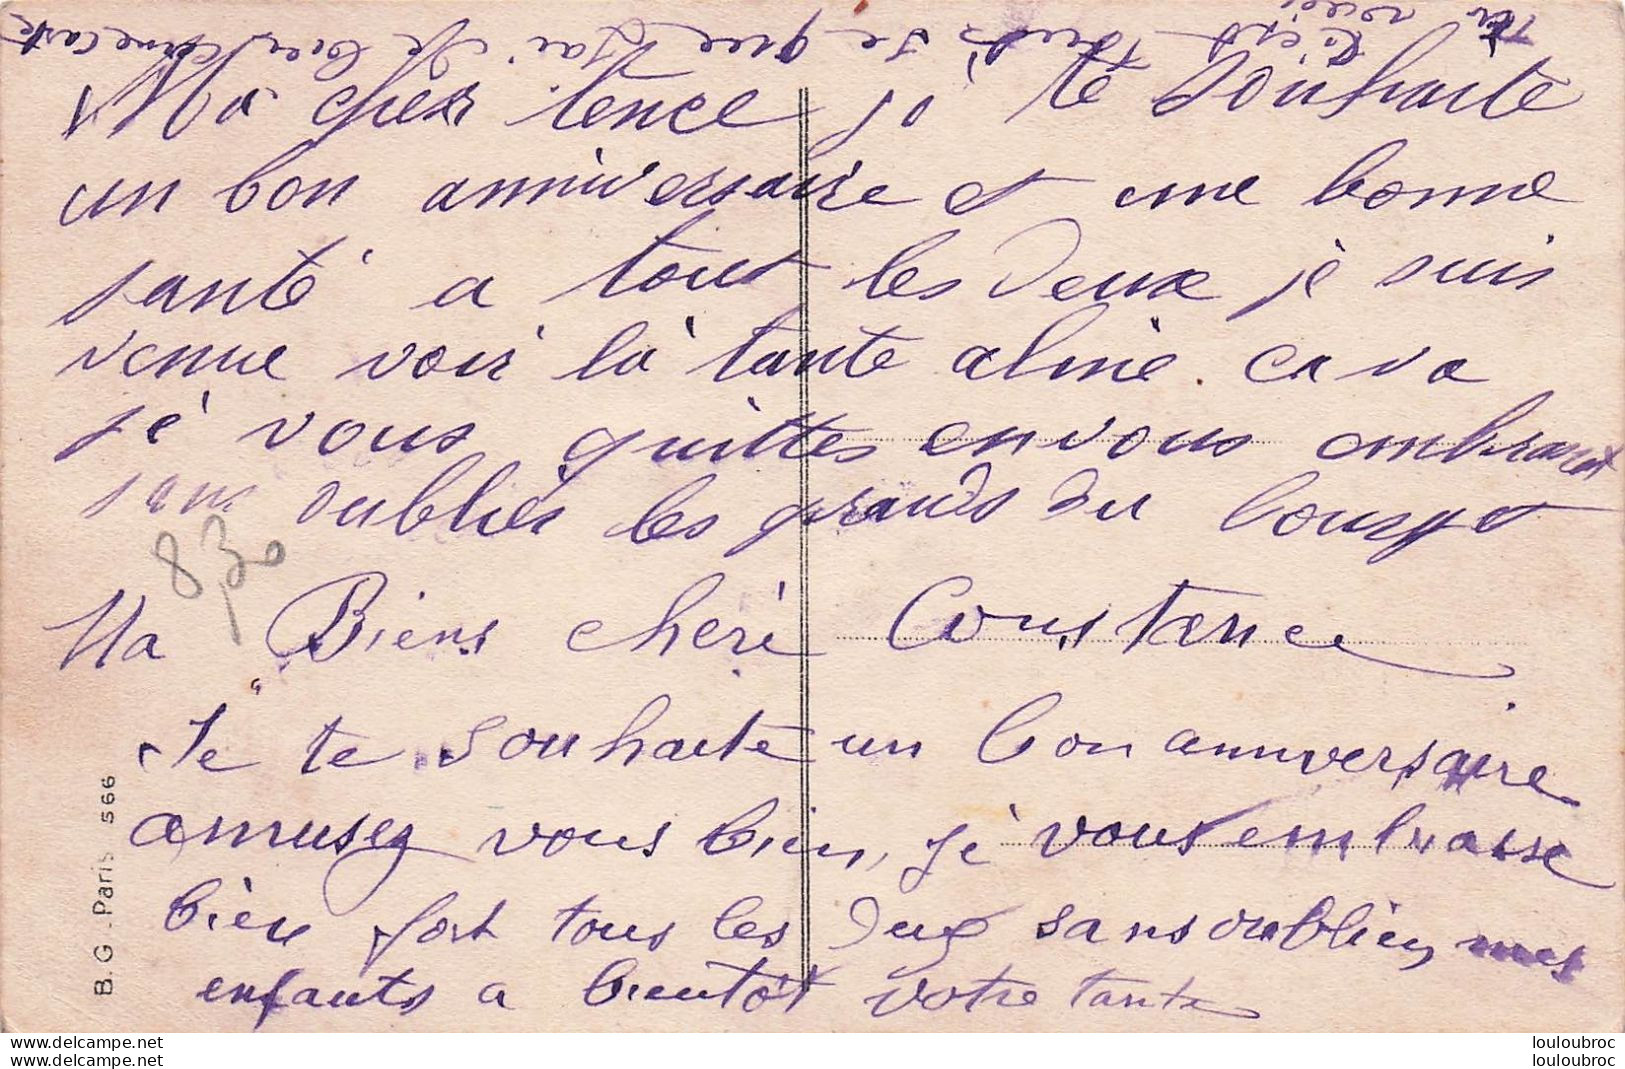 Ma cher tence je te souhaite
un bon anniversaire et une bonne
santé a tout les deux je suis
venue voir la tante aline. ca va
je vous quittes en vous embrasant
sans oubliés les grands du bourget
830
Ma Biens cheri Constence
Je te souhaite un bon anniversaire
amusez vous bien, je vous embrasse
bien fort tous les deux sans oublier mes
enfants a bientôt votre tante
B.G. Paris 566
louloubroc
louloubroc